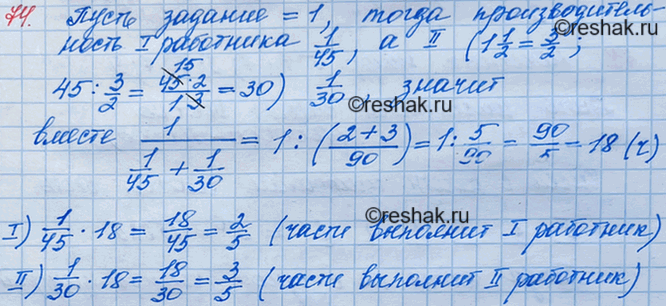 74. Пусть задание = 1, тогда производитель-
ность I работника 1/45, а II (1 1/2 = 3/2;
45 : 3/2 = 45 · 2 / 1 · 3 = 30) 1/30, значит
15
вместе 1 / (1/45 + 1/30) = 1 : (2 + 3 / 90) = 1 : 5/90 = 90/5 = 18 (ч)
I) 1/45 · 18 = 18/45 = 2/5 (части выполнит I работник)
II) 1/30 · 18 = 18/30 = 3/5 (части выполнит II работник)
©reshak.ru
©reshak.ru
©reshak.ru